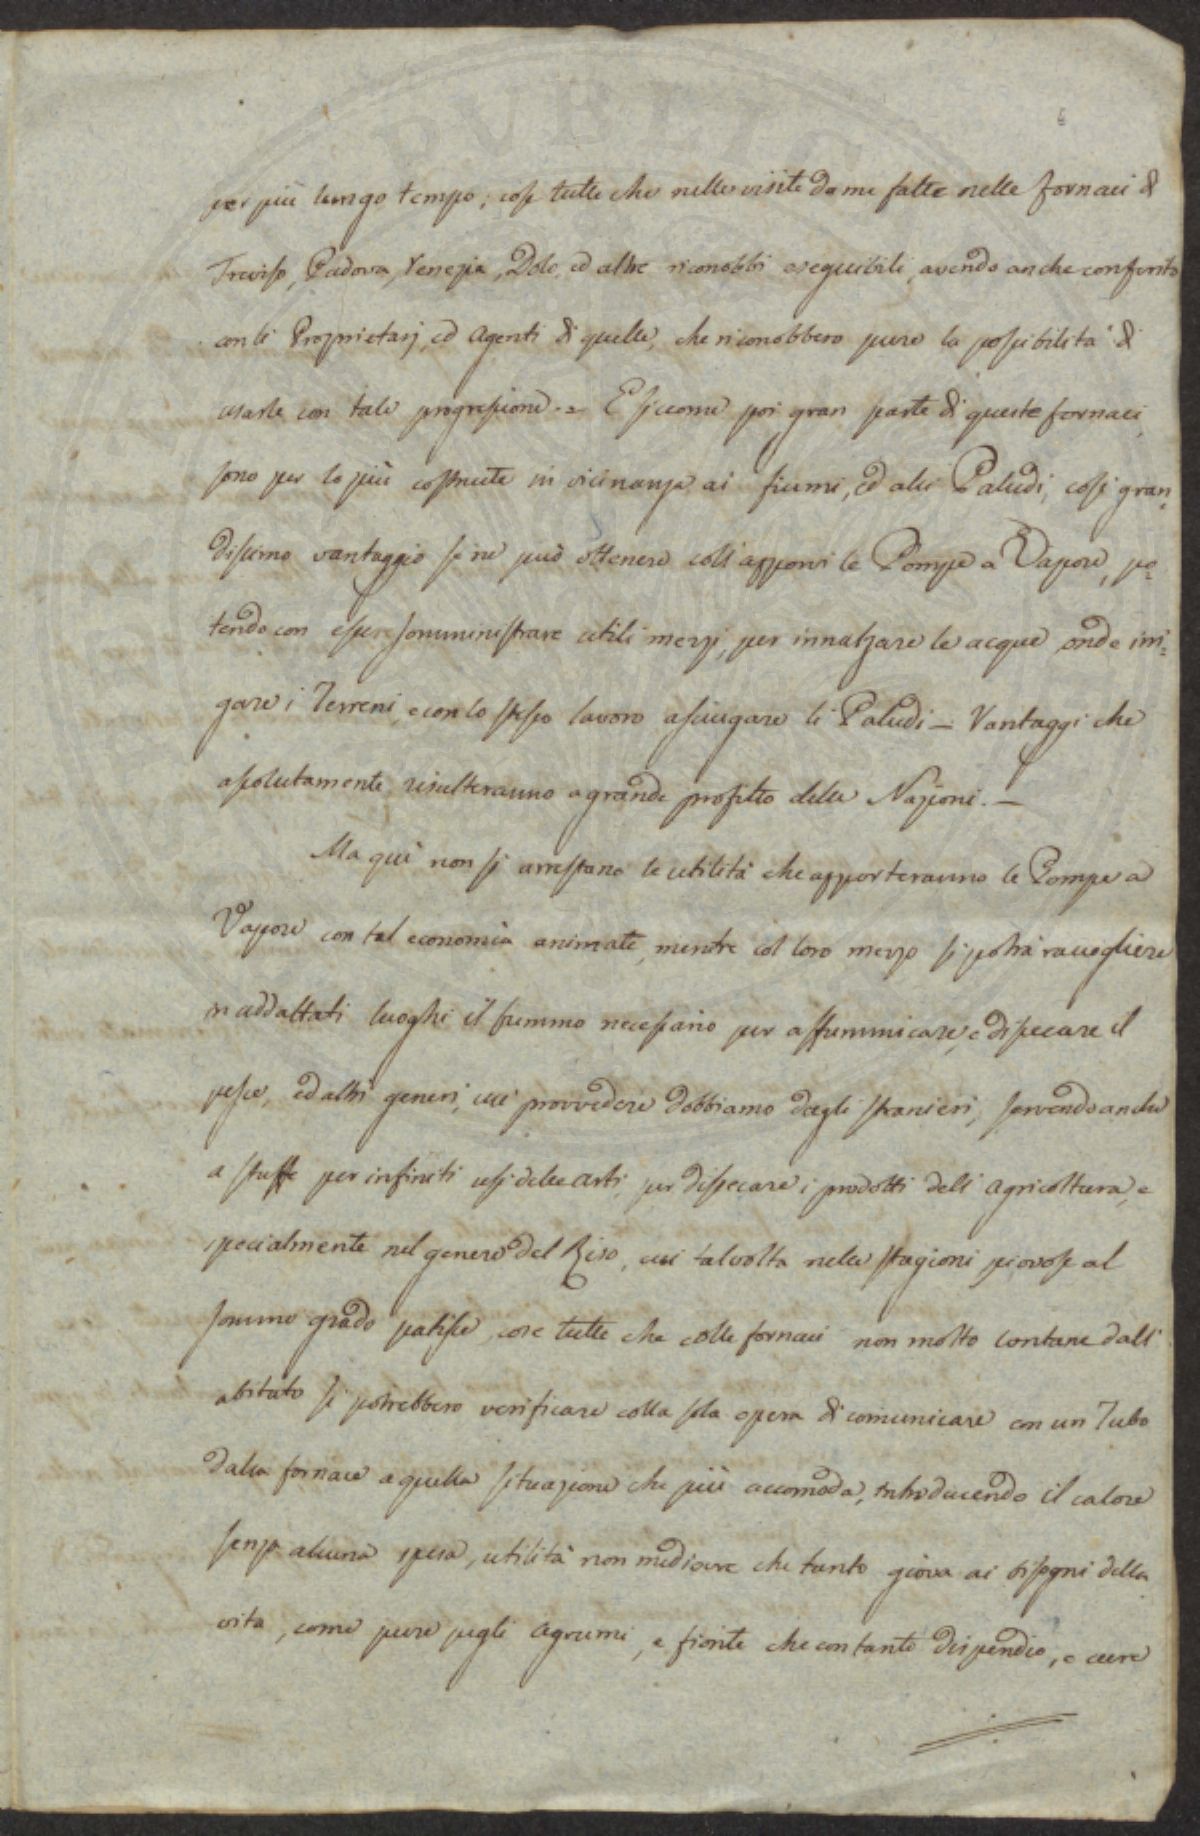 per più lungo tempo; cose tutte che nelle visite da me fatte nelle fornaci di
Treviso, Padova, Venezia, Dolo, ed altre riconobbi eseguibili, avendo anche conferito
con li Proprietarj, ed Agenti di quelle, che riconobbero pure la possibilità di
usarle con tale progressione.= E siccome poi gran parte di queste fornaci
sono per lo più costrutte in vicinanza ai fiumi, ed alli Paludi, così gran=
dissimo vantaggio se ne può ottenere coll'apporvi le Pompe a Vapore, po=
tendo con esse somministrare utili mezzi, per innalzare le acque onde irri=
gare i Terreni, e con lo stesso lavoro asciugare li Paludi – Vantaggi che
assolutamente risulteranno a grande profitto delle Nazioni. –
Ma quì non si arrestano le utilità che apporteranno le Pompe a
Vapore con tal economia animate, mentre col loro mezzo si potrà raccogliere
in addattati luoghi il fummo necessario per affummicare, e dissecare il
pesce, ed altri generi, cui provvedere dobbiamo dagli stranieri, servendo anche
a stuffe per infiniti usi delle arti, per dissecare i prodotti dell'agricoltura, e
specialmente nel genere del Riso, cui talvolta nelle stagioni piovose al
sommo grado patisce, cose tutte che colle fornaci non molto lontane dall'
abitato si potrebbero verificare colla sola opera di comunicare con un Tubo
dalla fornace a quella situazione che più accomoda, introducendo il calore
senza alcuna spesa, utilità non mediocre che tanto giova ai bisogni della
vita, come pure pegli agrumi, e fiorite che con tanto dispendio, e cure